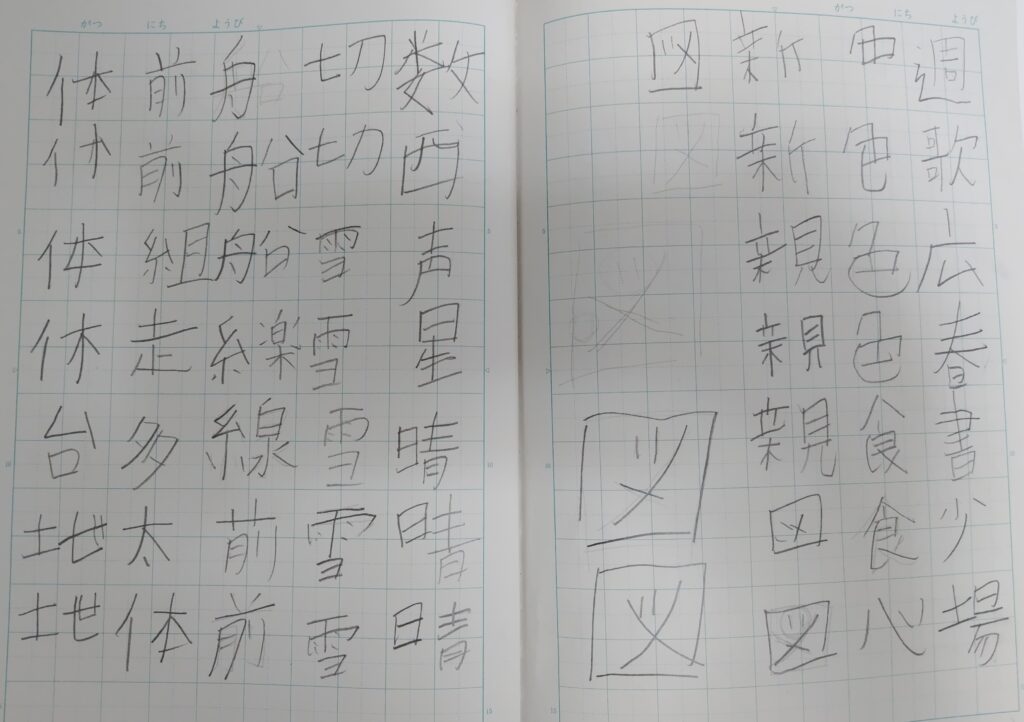 がつ にち ようび
週歌広春書少場
色色色食食心
新新親親親図図
図図図図
がつ にち ようび
数西声星晴晴晴
切切雪雪雪雪雪
舟船船線前前
前前組走多太体
体体休台地地